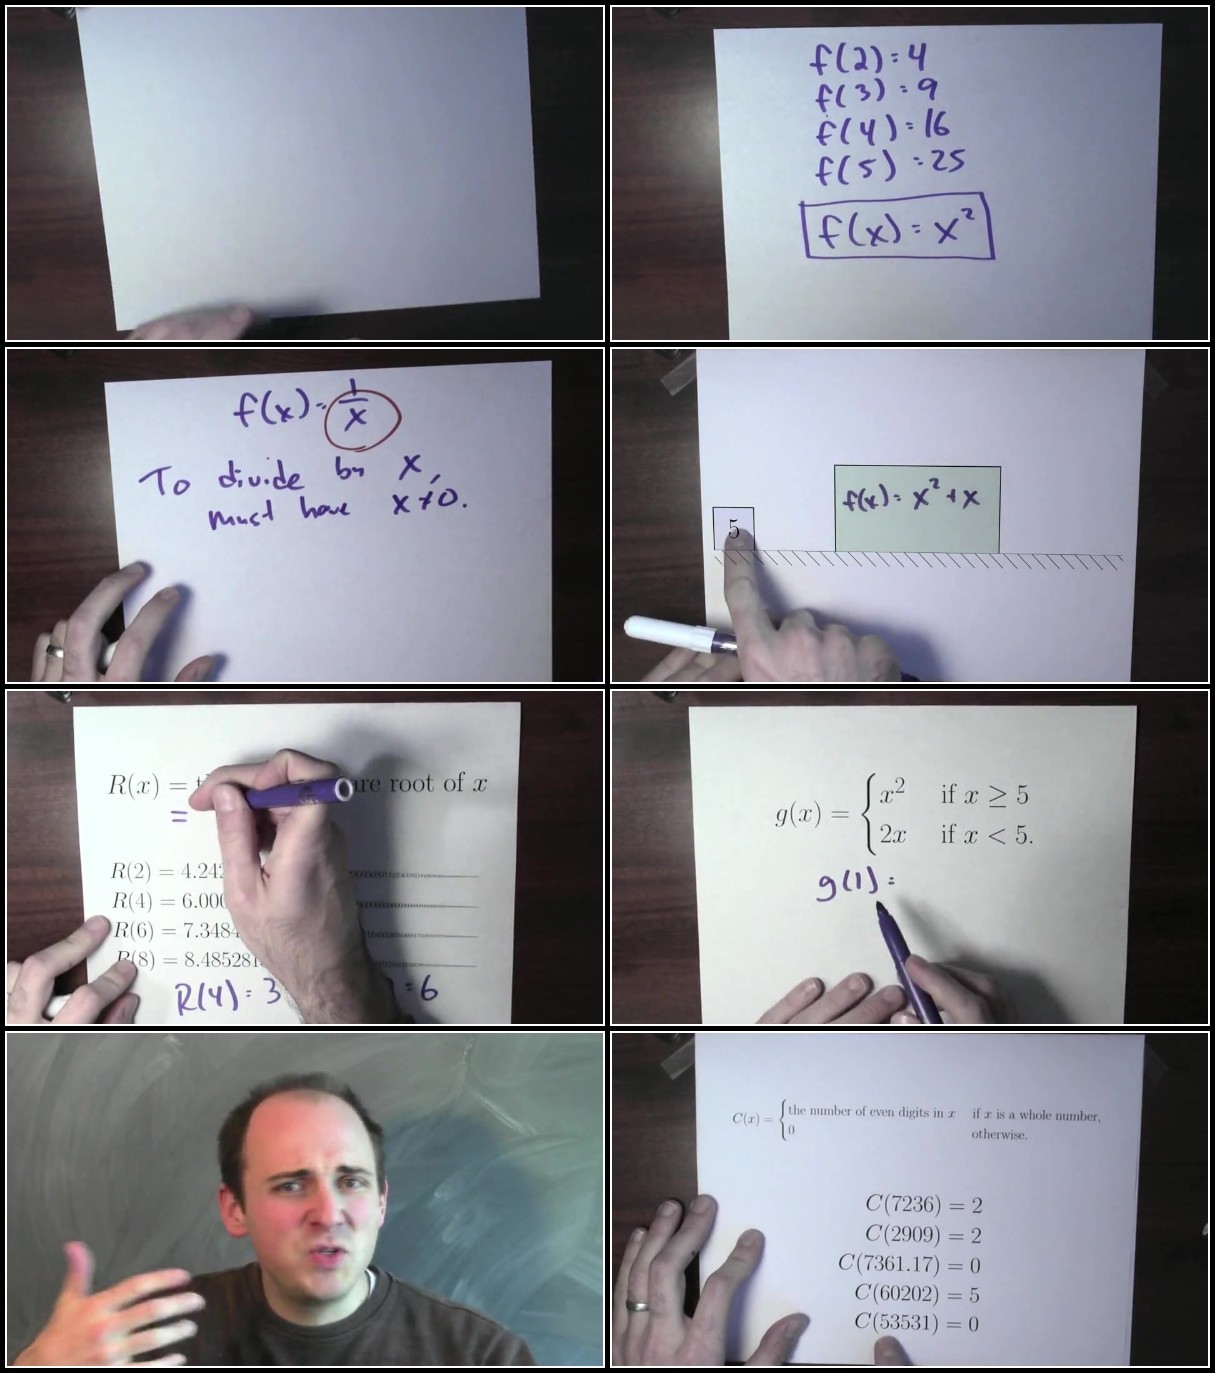 f(2) = 4
f(3) = 9
f(4) = 16
f(5) = 25
f(x) = x²
f(x) = 1/x
To divide by x,
must have x ≠ 0.
5
f(x) = x² + x
R(x) = are root of x
=
R(2) = 4.242
R(4) = 6.000
R(6) = 7.3484
R(8) = 8.48528
R(4) = 3 = 6
g(x) = { x² if x ≥ 5
2x if x < 5.
g(1) =
C(x) = { the number of even digits in x if x is a whole number,
0 otherwise.
C(7236) = 2
C(2909) = 2
C(7361.17) = 0
C(60202) = 5
C(53531) = 0